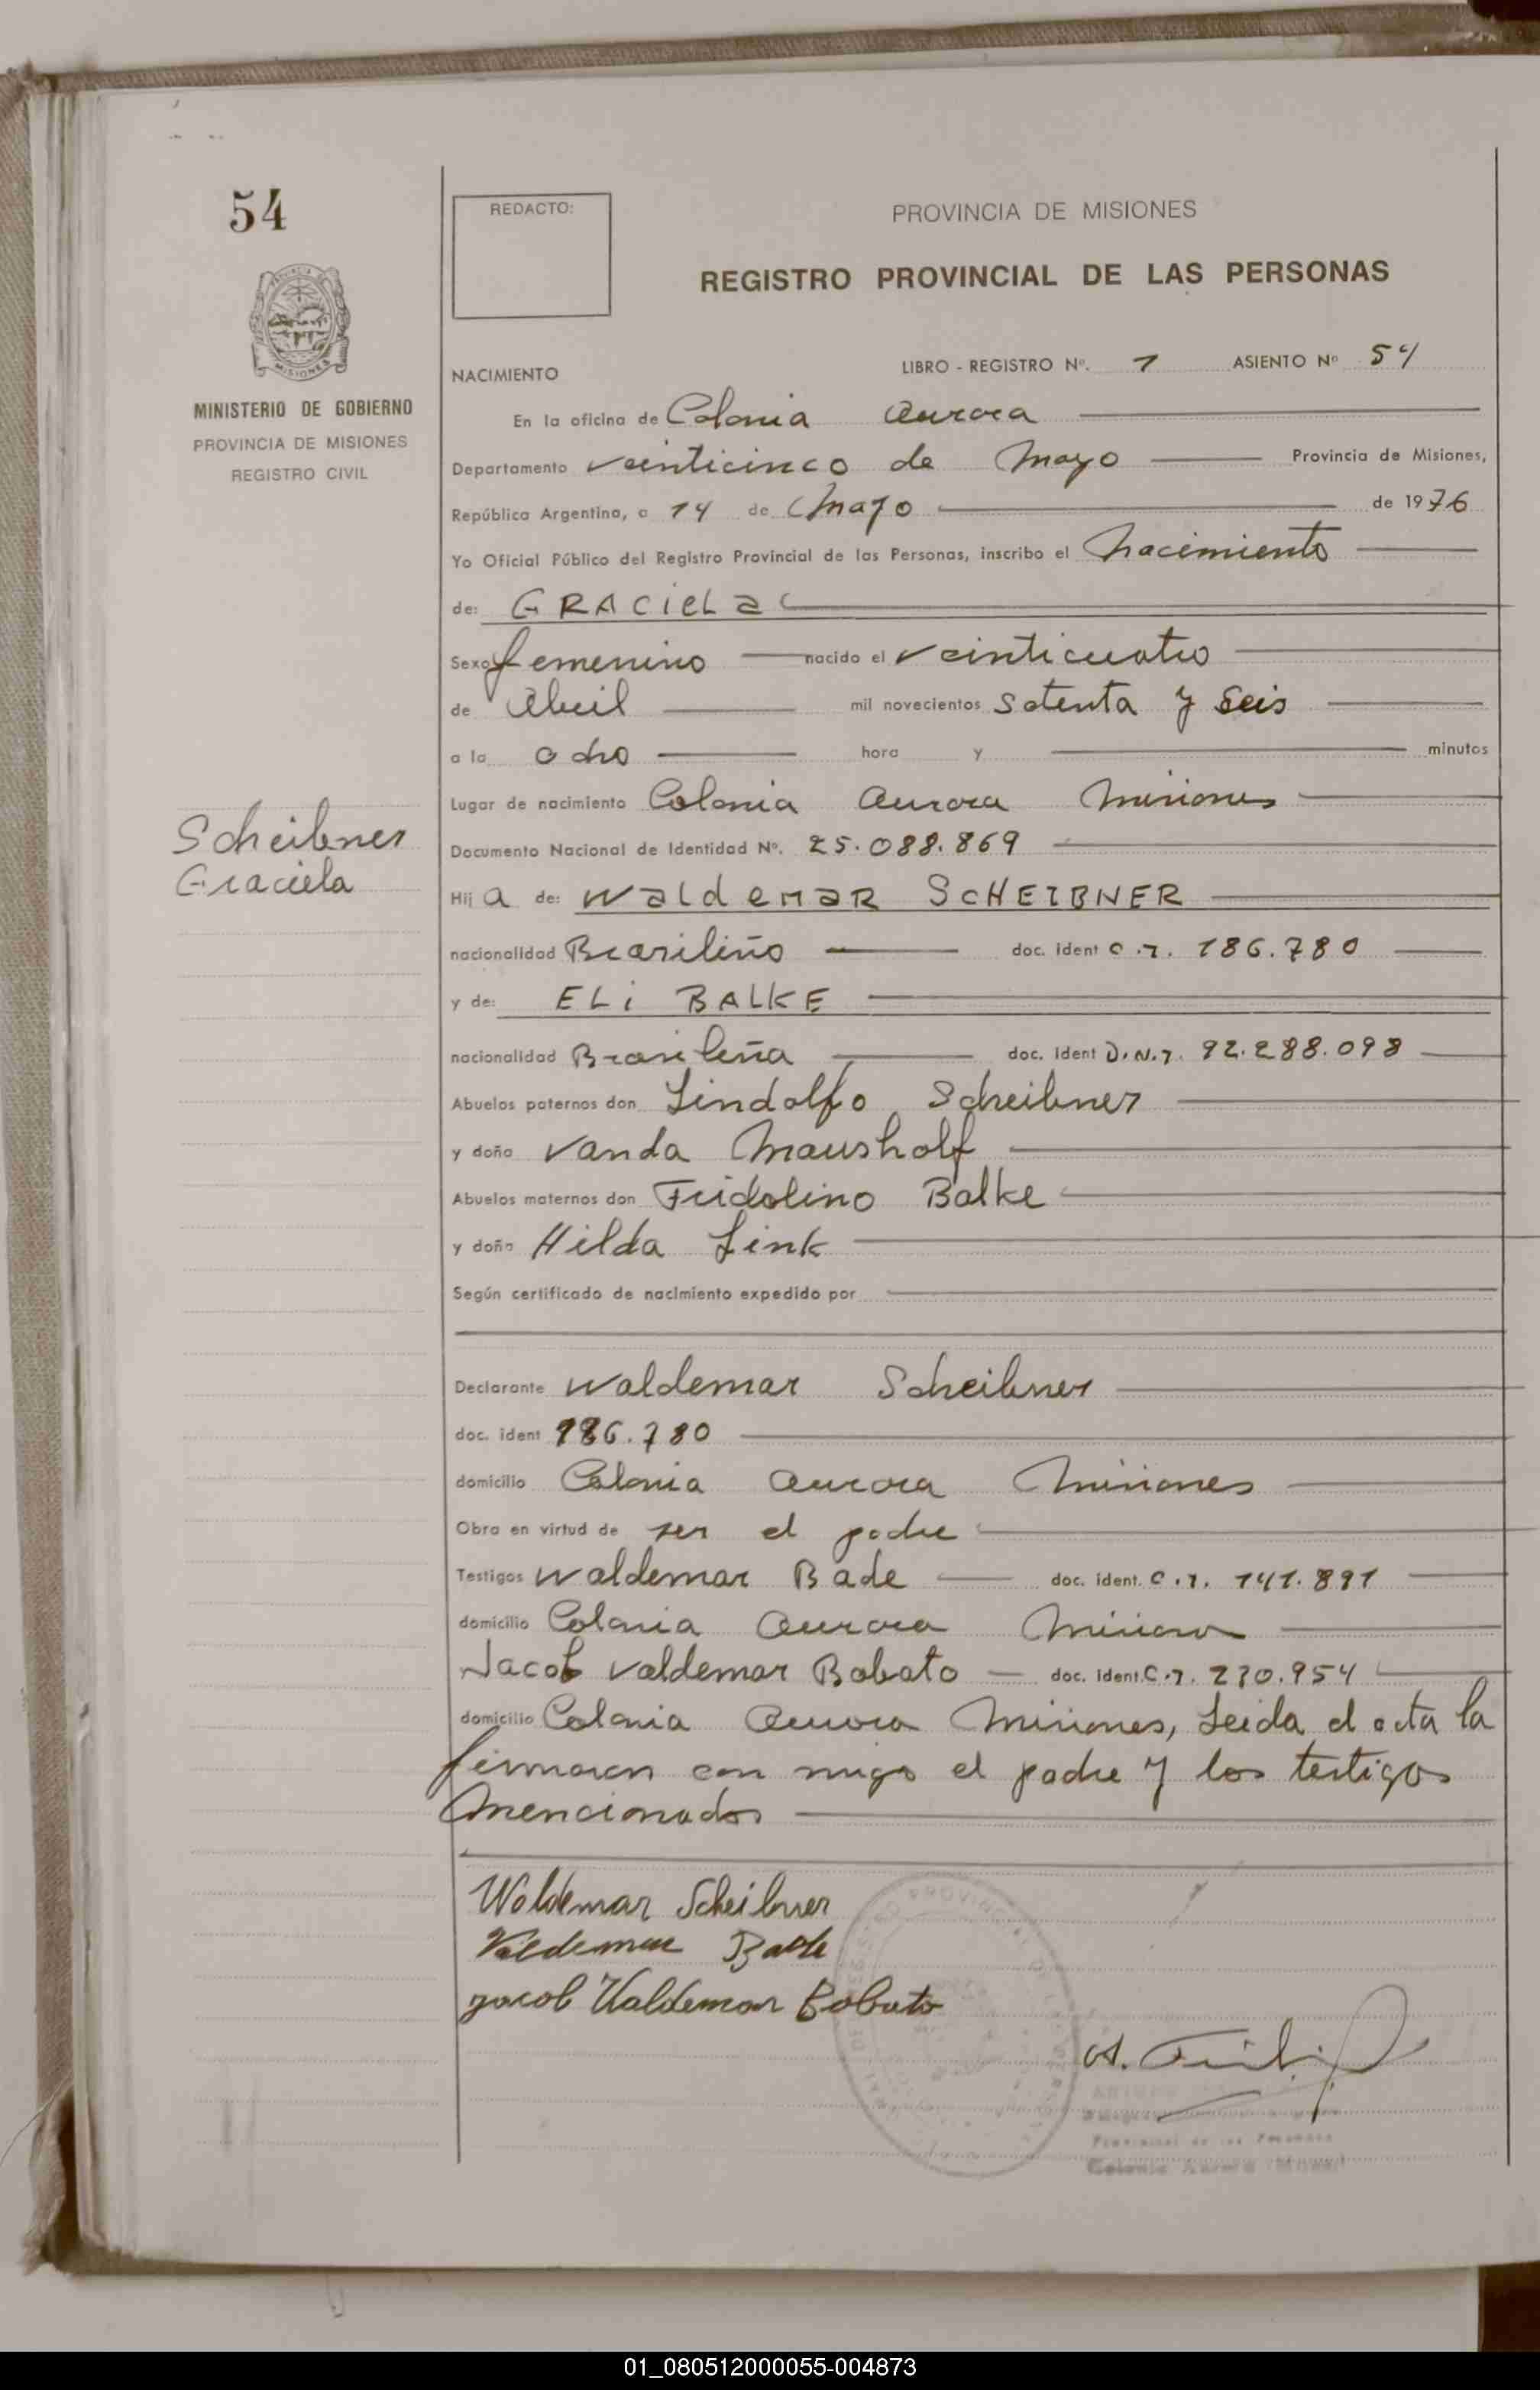 54
REDACTO:
PROVINCIA DE MISIONES
REGISTRO PROVINCIAL DE LAS PERSONAS
MISIONES
MINISTERIO DE GOBIERNO
PROVINCIA DE MISIONES
REGISTRO CIVIL
NACIMIENTO LIBRO - REGISTRO Nº. 1 ASIENTO Nº 54
En la oficina de Colonia Aurora
Departamento veinticinco de Mayo Provincia de Misiones,
República Argentina, a 14 de Mayo de 1976
Yo Oficial Público del Registro Provincial de las Personas, inscribo el Nacimiento
de: GRACIELA
Sexo femenino nacido el veinticuatro
de Abril mil novecientos setenta y seis
a la ocho hora y minutos
Lugar de nacimiento Colonia Aurora Misiones
Scheibner
Graciela
Documento Nacional de Identidad Nº. 25.088.869
Hij a de: WALDEMAR SCHEIBNER
nacionalidad Brasileño doc. ident C.I. 186.780
y de: ELI BALKE
nacionalidad Brasileña doc. ident D.N.I. 92.288.098
Abuelos paternos don Lindolfo Scheibner
y doña Vanda Mausholf
Abuelos maternos don Fridolino Balke
y doña Hilda Link
Según certificado de nacimiento expedido por
Declarante Waldemar Scheibner
doc. ident 186.780
domicilio Colonia Aurora Misiones
Obra en virtud de ser el padre
Testigos Waldemar Bade doc. ident. C.I. 141.891
domicilio Colonia Aurora Misiones
Jacob Valdemar Bobato doc. ident. C.I. 230.954
domicilio Colonia Aurora Misiones, Leida el acta la
firmaron con migo el padre y los testigos
Mencionados
Woldemar Scheibner
Valdemar Bade
Jacob Valdemar Bobato
Colonia Aurora
01_080512000055-004873